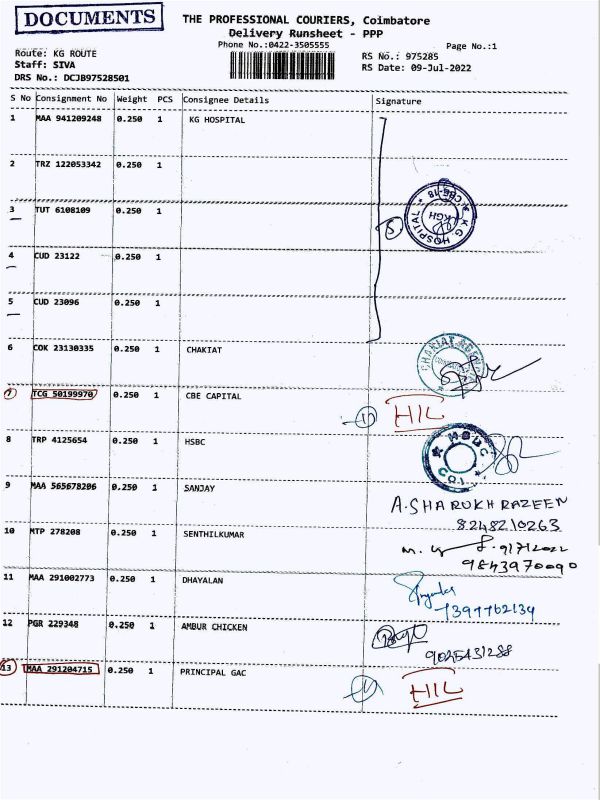 DOCUMENTS
THE PROFESSIONAL COURIERS, Coimbatore
Delivery Runsheet - PPP
Phone No.:0422-3505555
Page No.:1
Route: KG ROUTE
Staff: SIVA
DRS No.: DCJB97528501
RS No.: 975285
RS Date: 09-Jul-2022
S No Consignment No Weight PCS Consignee Details Signature
1 MAA 941209248 0.250 1 KG HOSPITAL
2 TRZ 122053342 0.250 1
3 TUT 6108109 0.250 1
K G HOSPITAL * CBE-18 *
KGH
5
4 CUD 23122 0.250 1
5 CUD 23096 0.250 1
6 COK 23130335 0.250 1 CHAKIAT
CHAKIAT AGENCIES
7 TCG 50199970 0.250 1 CBE CAPITAL
HIL
8 TRP 4125654 0.250 1 HSBC
HSBC
9 MAA 565678206 0.250 1 SANJAY
A.SHARUKH RAZEEN
8248210263
10 MTP 278208 0.250 1 SENTHILKUMAR
9843970090
11 MAA 291002773 0.250 1 DHAYALAN
7397762134
12 PGR 229348 0.250 1 AMBUR CHICKEN
9025431288
13 MAA 291204715 0.250 1 PRINCIPAL GAC
HIL